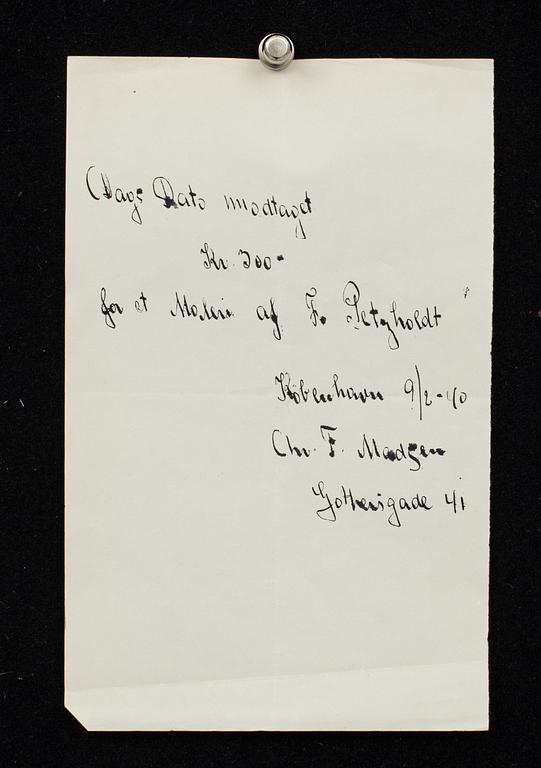 Dags Dato modtaget
Kr. 300-
for et Maleri af F. Petzholdt
København 9/2-40
Chr. F. Madsen
Gothersgade 41